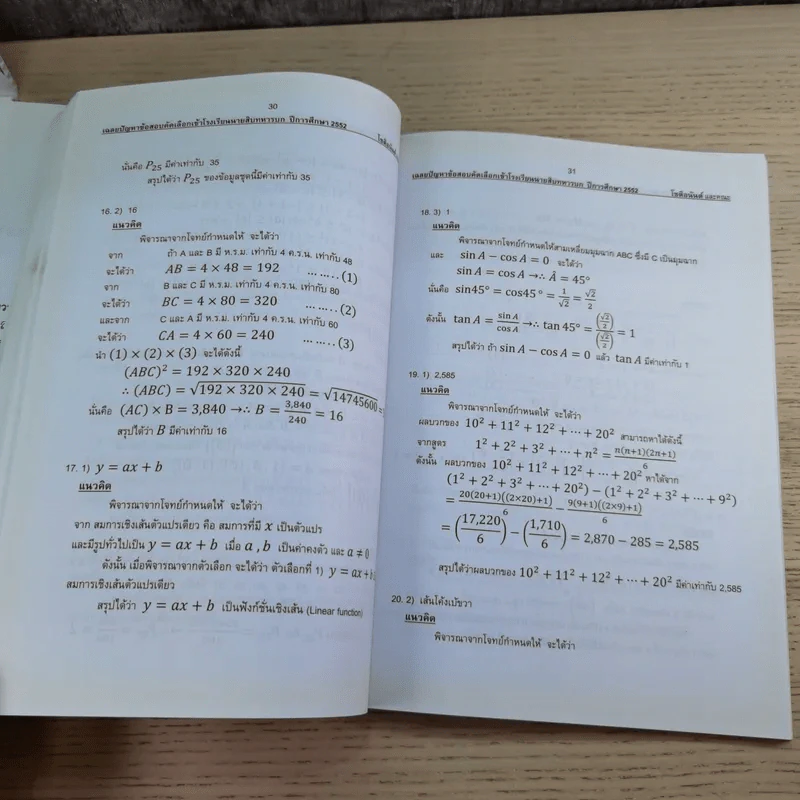 30
เฉลยปัญหาข้อสอบคัดเลือกเข้าโรงเรียนนายสิบทหารบก ปีการศึกษา 2552
นั่นคือ P₂₅ มีค่าเท่ากับ 35
สรุปได้ว่า P₂₅ ของข้อมูลชุดนี้มีค่าเท่ากับ 35
16. 2) 16
แนวคิด
พิจารณาจากโจทย์กำหนดให้ จะได้ว่า
จาก ถ้า A และ B มี ห.ร.ม. เท่ากับ 4 ค.ร.น. เท่ากับ 48
จะได้ว่า AB = 4 × 48 = 192 ………(1)
จาก B และ C มี ห.ร.ม. เท่ากับ 4 ค.ร.น. เท่ากับ 80
จะได้ว่า BC = 4 × 80 = 320 ………(2)
และจาก C และ A มี ห.ร.ม. เท่ากับ 4 ค.ร.น. เท่ากับ 60
จะได้ว่า CA = 4 × 60 = 240 ………(3)
นำ (1) × (2) × (3) จะได้ดังนี้
(ABC)² = 192 × 320 × 240
∴ (ABC) = √(192 × 320 × 240) = √14745600 =
นั่นคือ (AC) × B = 3,840 →∴ B = 3,840/240 = 16
สรุปได้ว่า B มีค่าเท่ากับ 16
17. 1) y = ax + b
แนวคิด
พิจารณาจากโจทย์กำหนดให้ จะได้ว่า
จาก สมการเชิงเส้นตัวแปรเดียว คือ สมการที่มี x เป็นตัวแปร
และมีรูปทั่วไปเป็น y = ax + b เมื่อ a , b เป็นค่าคงตัว และ a ≠ 0
ดังนั้น เมื่อพิจารณาจากตัวเลือก จะได้ว่า ตัวเลือกที่ 1) y = ax + b
สมการเชิงเส้นตัวแปรเดียว
สรุปได้ว่า y = ax + b เป็นฟังก์ชั่นเชิงเส้น (Linear function)
31
เฉลยปัญหาข้อสอบคัดเลือกเข้าโรงเรียนนายสิบทหารบก ปีการศึกษา 2552 โชติอนันต์ และคณะ
18. 3) 1
แนวคิด
พิจารณาจากโจทย์กำหนดให้สามเหลี่ยมมุมฉาก ABC ซึ่งมี C เป็นมุมฉาก
และ sin A − cos A = 0 จะได้ว่า
sin A = cos A →∴ Â = 45°
นั่นคือ sin45° = cos45 ° = 1/√2 = √2/2
ดังนั้น tan A = sin A/cos A →∴ tan 45° = (√2/2)/(√2/2) = 1
สรุปได้ว่า ถ้า sin A − cos A = 0 แล้ว tan A มีค่าเท่ากับ 1
19. 1) 2,585
แนวคิด
พิจารณาจากโจทย์กำหนดให้ จะได้ว่า
ผลบวกของ 10² + 11² + 12² + ⋯ + 20² สามารถหาได้ดังนี้
จากสูตร 1² + 2² + 3² + ⋯ + n² = n(n+1)(2n+1)/6
ดังนั้น ผลบวกของ 10² + 11² + 12² + ⋯ + 20² หาได้จาก
(1² + 2² + 3² + ⋯ + 20²) − (1² + 2² + 3² + ⋯ + 9²)
= 20(20+1)((2×20)+1)/6 − 9(9+1)((2×9)+1)/6
= (17,220/6) − (1,710/6) = 2,870 − 285 = 2,585
สรุปได้ว่าผลบวกของ 10² + 11² + 12² + ⋯ + 20² มีค่าเท่ากับ 2,585
20. 2) เส้นโค้งเบ้ขวา
แนวคิด
พิจารณาจากโจทย์กำหนดให้ จะได้ว่า